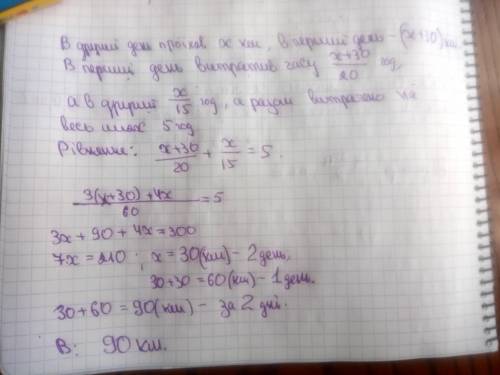 В другий день проїхав x км, в перший день - (x+30) км.
В перший день витратив часу x+30/20 год,
а в другий x/15 год, а разом витрачено на
весь шлях 5 год
Рівняння: x+30/20 + x/15 = 5.
3(x+30)+4x/60 = 5
3x + 90 + 4x = 300
7x = 210 ; x = 30(км) - 2 день.
30+30 = 60(км) - 1 день.
30+60 = 90(км) - за 2 дні.
В: 90 км.